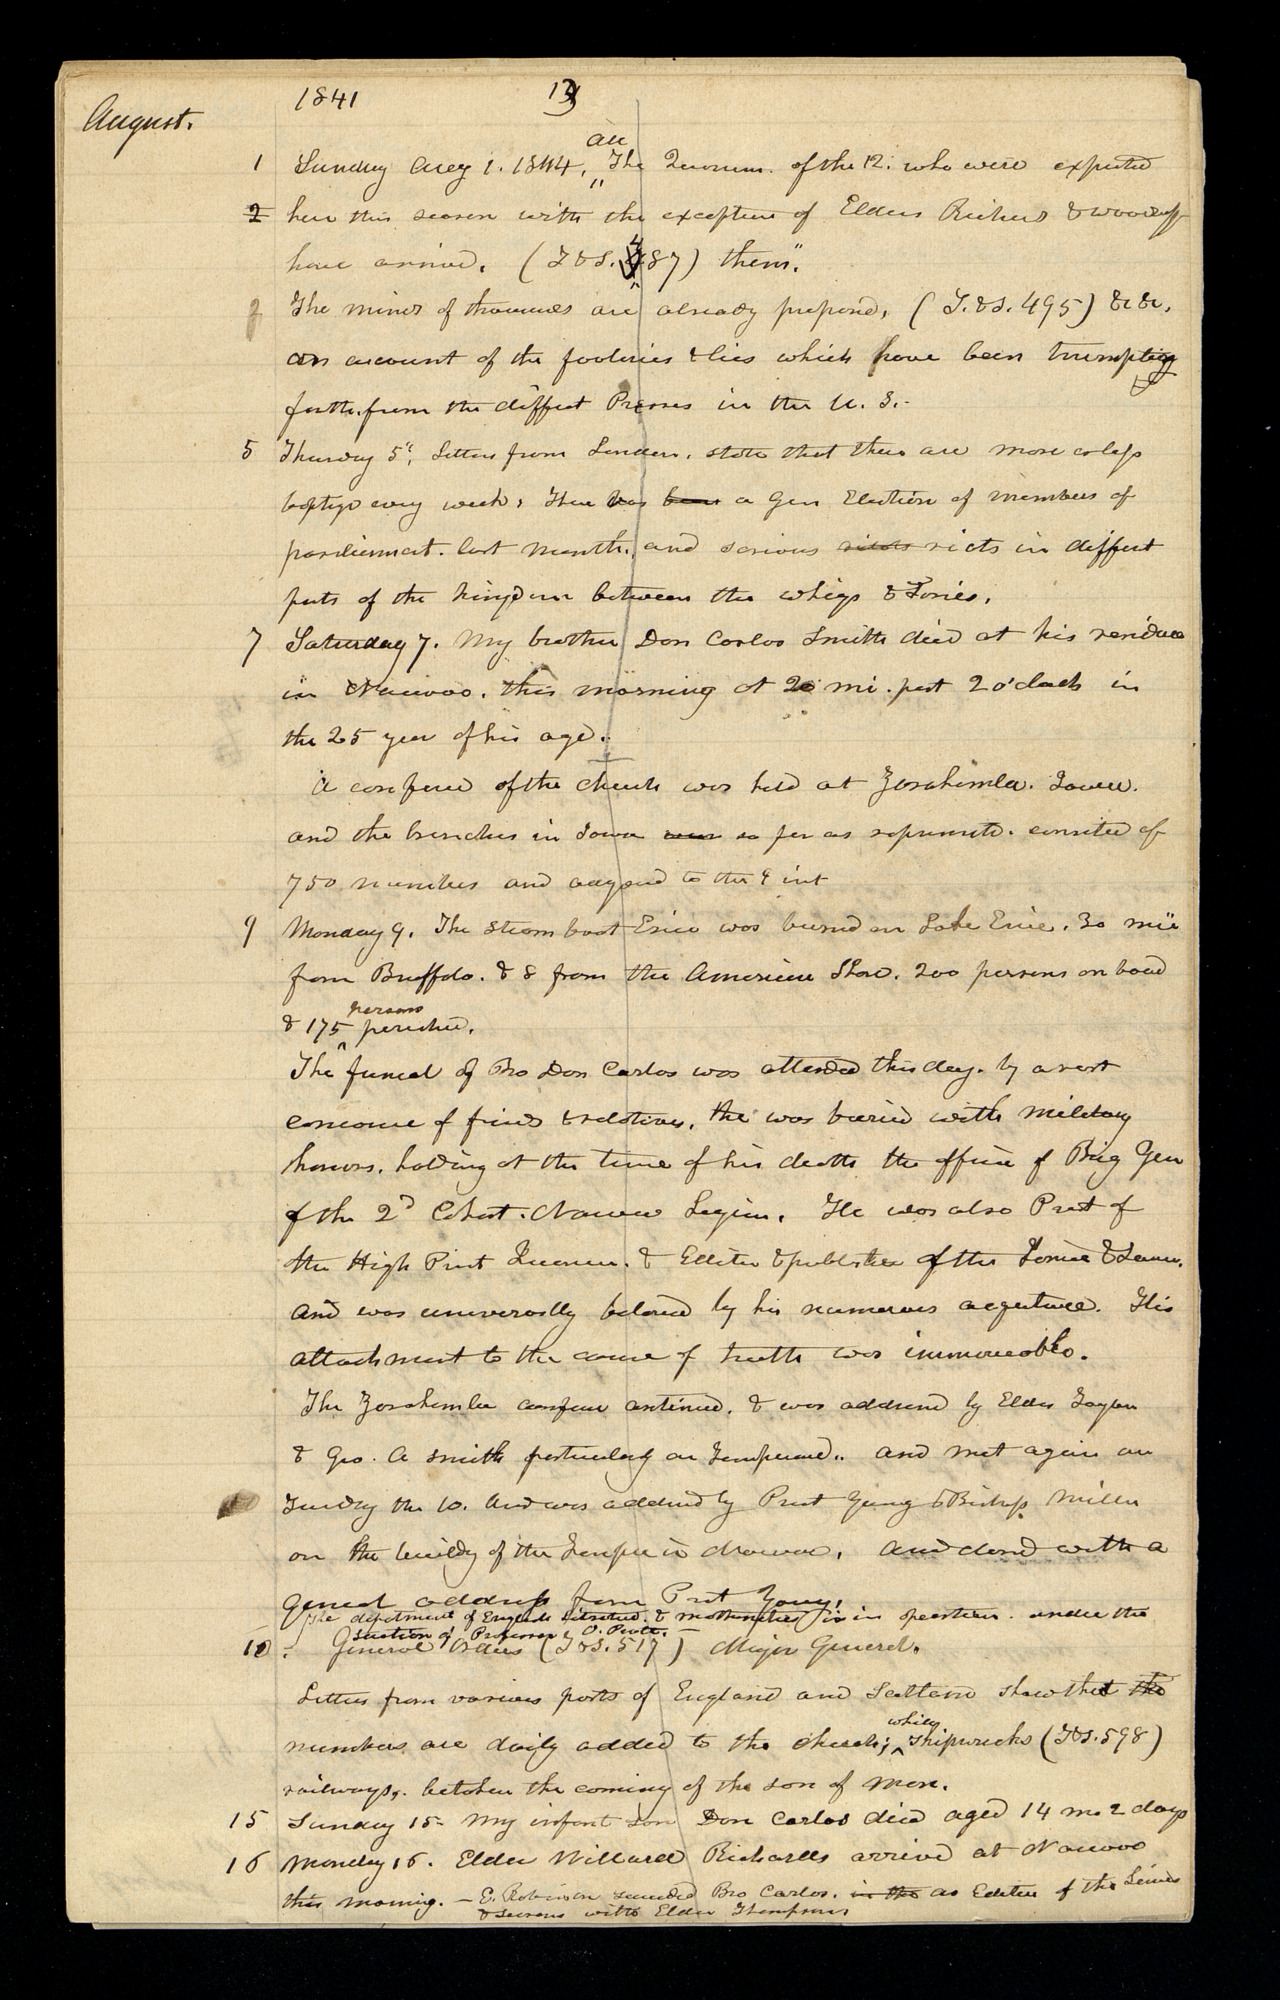 1841 13
August.
1 Sunday Aug 1. 1841, "All The Quorum. of the 12. who were expected
2 here this season with the exception of Elders Richards & Woodruff
have arrived. (T & S. 487) them".
The minds of thousands are already prepared, (T. & S. 495) &c &c.
an account of the fooleries & lies which have been
forth. from the differt Presses in the U. S.-
5 Thursday 5", Letters from London. state that there are more or less
baptizd every week, There was been a Gen Election of members of
parliament. last month, and serious riots riots in differt
parts of the kingdom between the whigs & Tories.
7 Saturday 7. My brother Don Carlos Smith died at his residence
in Nauvoo. this morning at 20 mi. past 2 o'clock in
the 25 year of his age.
A conference of the church was held at Zarahemla. Iowa.
and the branches in Iowa so far as represented. consisted of
750 members and adjourned to the 9 int
9 Monday 9. The Steam boat Erie was burned on Lake Erie. 30 mi
from Buffalo. & 8 from the American Shore. 200 persons on board
& 175 persons perished.
The funeral of Bro Don Carlos was attended this day. by a vast
concourse of friends & relatives, he was buried with military
honors. holding at the time of his death the office of Brig Gen
of the 2d Cohort. Nauvoo Legion. He was also Prest of
the High Priest Quorum. & Editor & publisher of the Times & Seasons.
and was universally beloved by his numerous acquaintance. His
attachment to the cause of truth was immoveable.
The Zarahemla conference continued. & was addressed by Elder Taylor
& Geo. A Smith particularly on Temperance.. and met again on
Tuesday the 10. and was addressed by Prest Young & Bishop Miller
on the building of the Temple in Nauvoo. and closed with a
general address from Prest Young.
The department of English Literature. & mathematics is in operation. under the
tuition of Professor O. Pratt.
10. General Orders (T & S. 517) Major General.
Letters from various parts of England and Scotland show that the
numbers are daily added to the church; while shipwrecks (T & S. 598)
railways,. betoken the coming of the son of man.
15 Sunday 15- My infant son Don Carlos died aged 14 mo 2 days
16 Monday 16. Elder Willard Richards arrived at Nauvoo
this morning. - E. Robinson succeeded Bro Carlos. in the as Editor of the Times
& Seasons with Elder Thompson